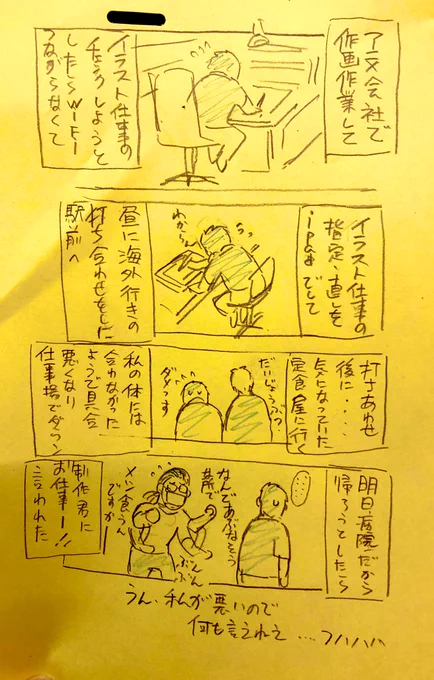 アニメ会社で
作画作業して
イラスト仕事の
チェックしようと
したらwifi
つながらなくて
イラスト仕事の
指定、直しを
ipadでして
わからん
昼に海外行きの
打ち合わせをした
駅前へ
打ちあわせ
後に・・・・
気になっていた
定食屋に行く
だいじょうぶっ
ダメっす
私の体には
合わなかった
ようで具合
悪くなり
仕事場でダウン
明日病院だから
帰ろうとしたら
なんであぶなそう
な
メシ食うん
ですか
ぷんぷん
制作君に
お仕事ー!!
言われた
うん、私が悪いので
何も言えねえ ....フハハハ